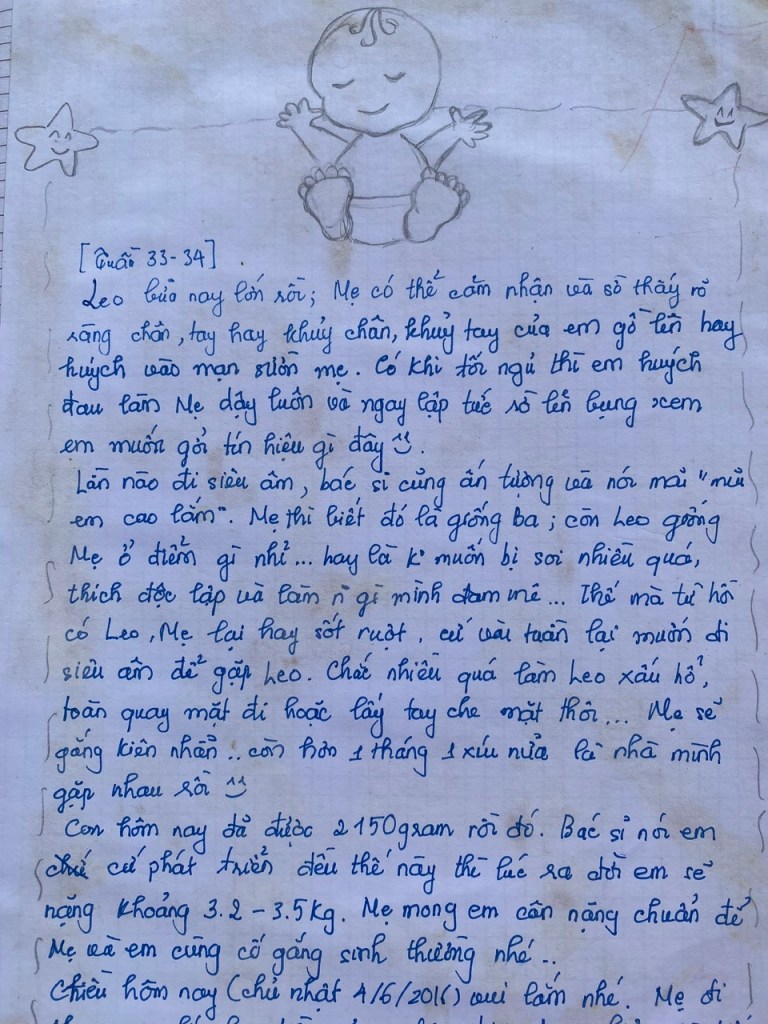 [Tuần 33-34]
Leo bữa nay lớn rồi; Mẹ có thể cảm nhận và sờ thấy rõ
ràng chân, tay hay khuỷ chân, khuỷ tay của em gồ lên hay
huých vào mạn sườn mẹ. Có khi tối ngủ thì em huých
đau làm Mẹ dậy luôn và ngay lập tức sờ lên bụng xem
em muốn gởi tín hiệu gì đây ^^.
Lần nào đi siêu âm, bác sĩ cũng ấn tượng và nói mãi "mũi
em cao lắm". Mẹ thì biết đó là giống Ba; còn Leo giống
Mẹ ở điểm gì nhỉ... hay là k° muốn bị soi nhiều quá,
thích độc lập và làm n~ gì mình đam mê... Thế mà từ hồi
có Leo, Mẹ lại hay sốt ruột, cứ vài tuần lại muốn đi
siêu âm để gặp Leo. Chắc nhiều quá làm Leo xấu hổ,
toàn quay mặt đi hoặc lấy tay che mặt thôi... Mẹ sẽ
gắng kiên nhẫn.. còn hơn 1 tháng 1 xíu nữa là nhà mình
gặp nhau rồi ^^
Con hôm nay đã được 2150gram rồi đó. Bác sĩ nói em
cứ phát triển đều thế này thì lúc ra đời em sẽ
nặng khoảng 3.2 - 3.5kg. Mẹ mong em cân nặng chuẩn để
Mẹ và em cùng cố gắng sinh thường nhé..
Chiều hôm nay (chủ nhật 4/6/2016) vui lắm nhé. Mẹ đi